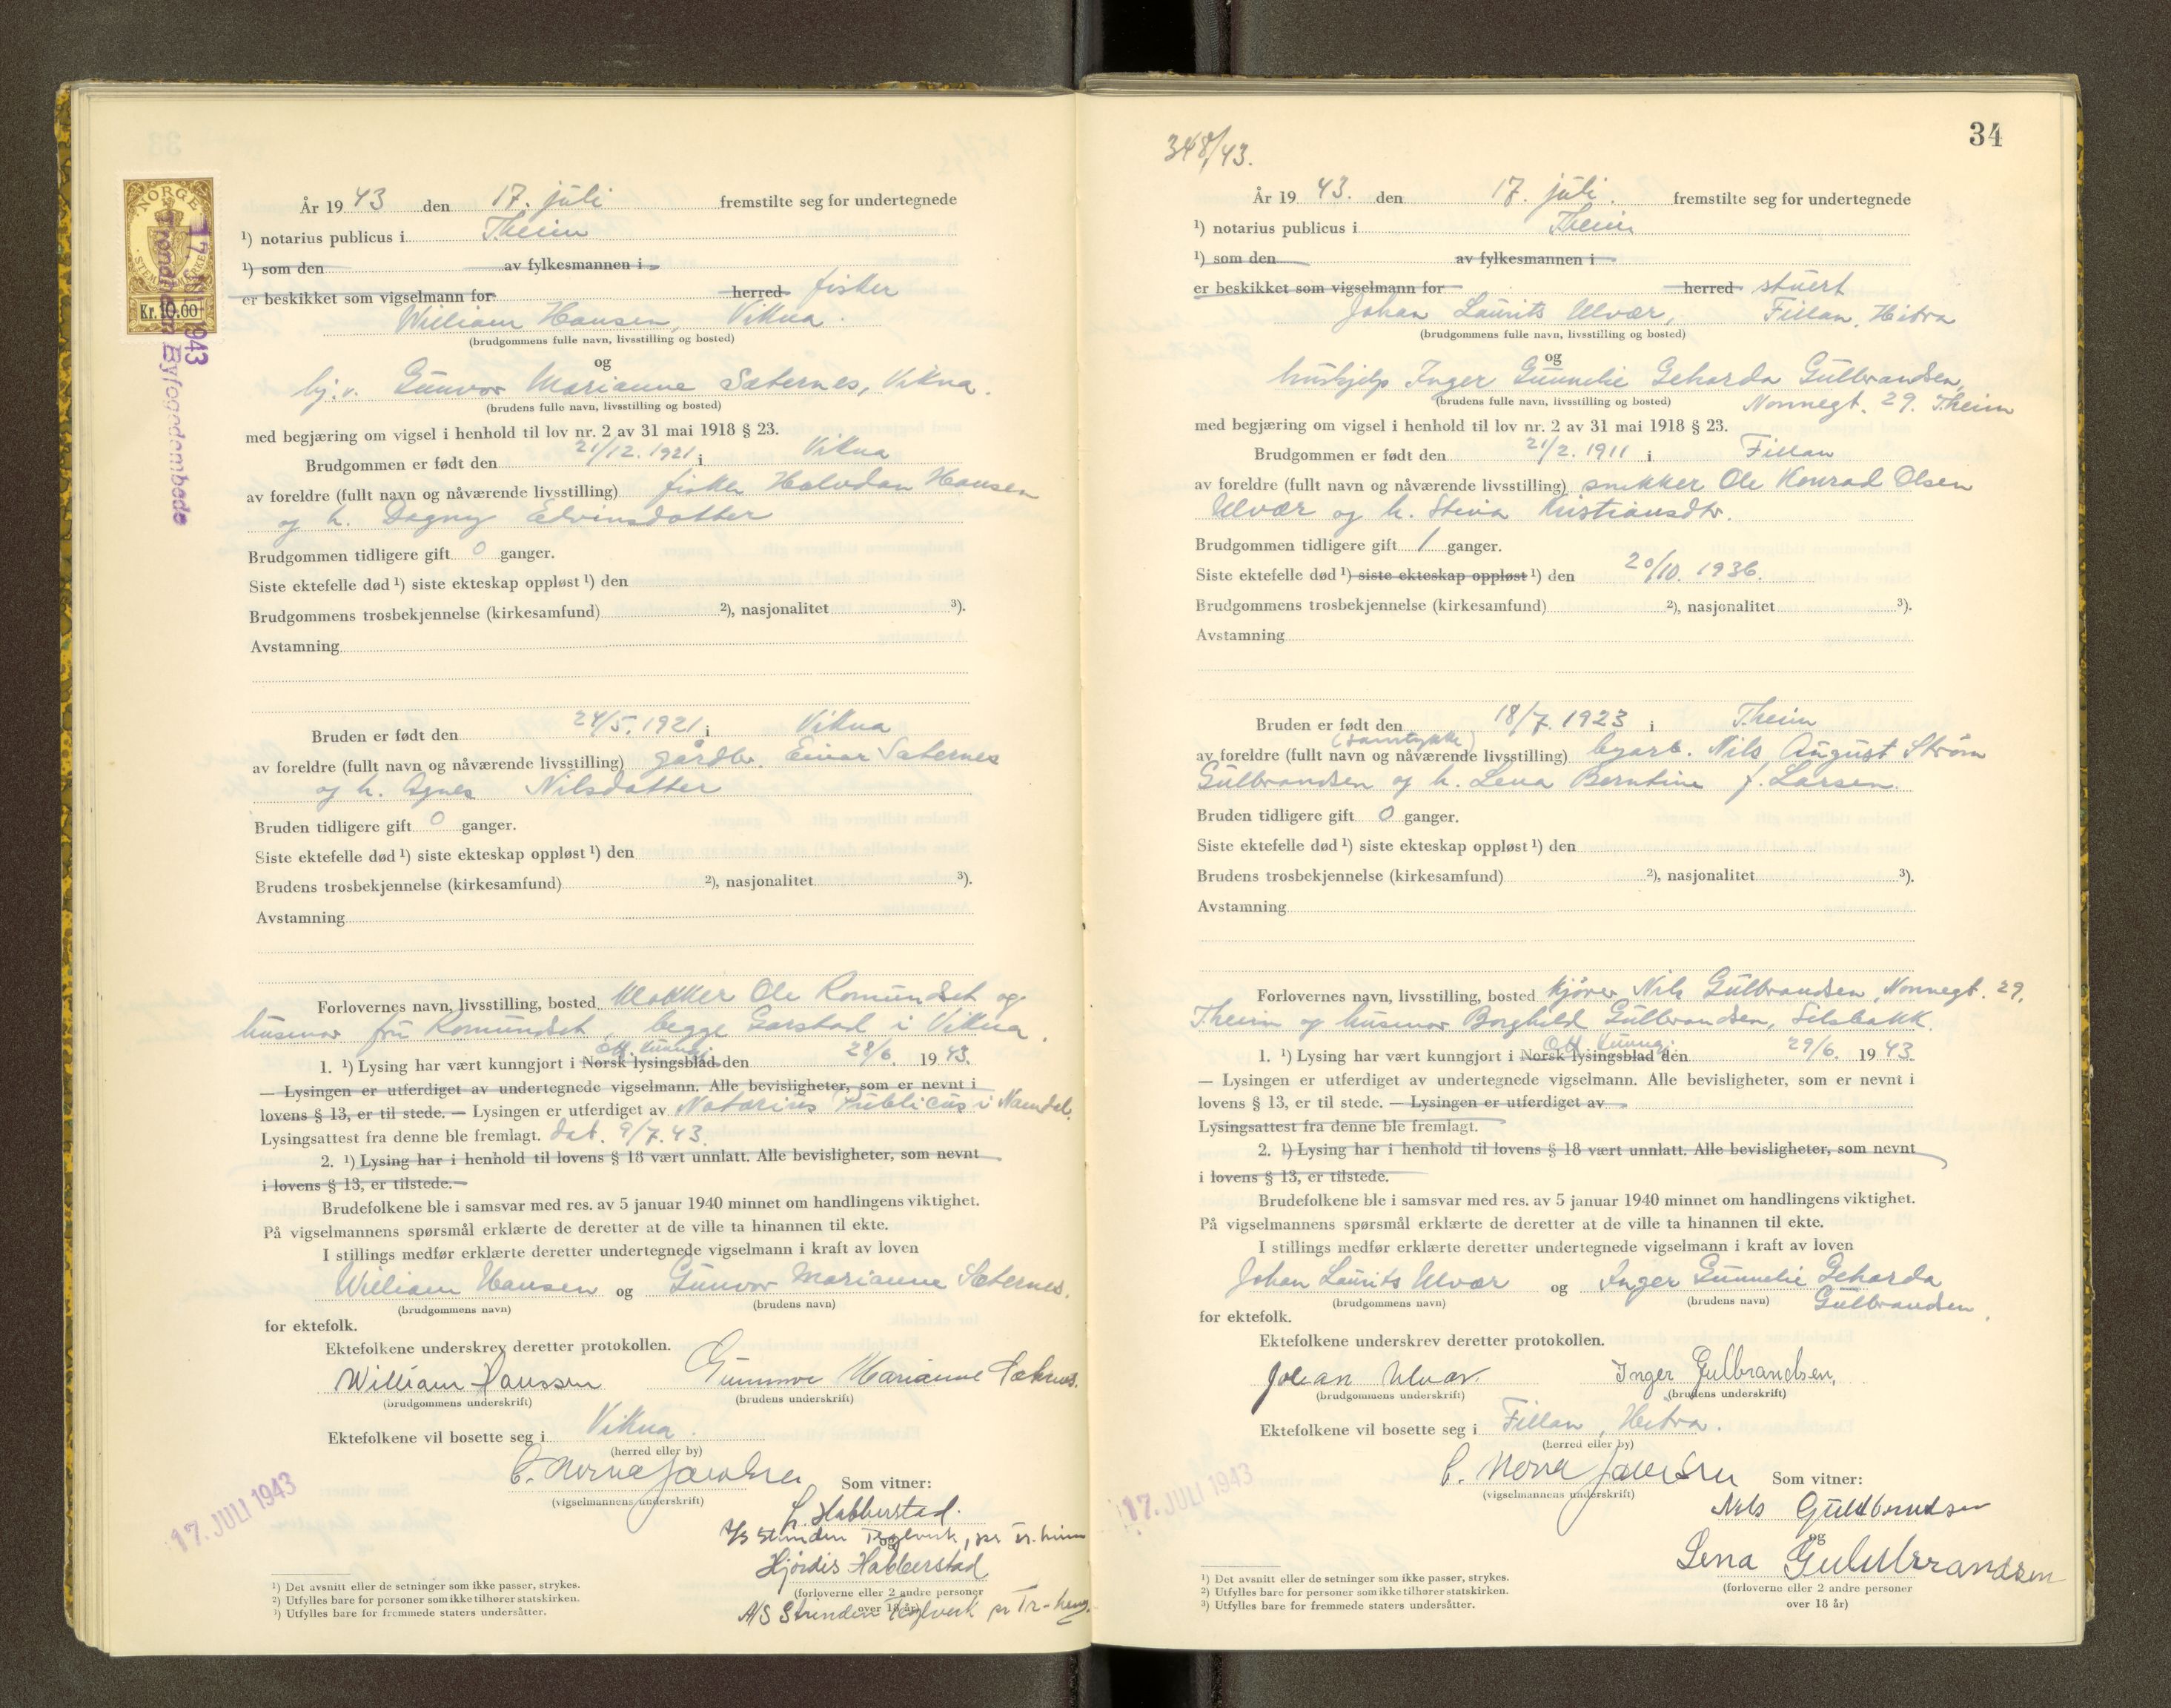 NORGE
STEMPELMERKE
Kr. 10.00
17 JULI 1943
Trondheim Byfogdembede
År 19 43 den 17. juli fremstilte seg for undertegnede
¹) notarius publicus i Theim
¹) som den av fylkesmannen i
er beskikket som vigselmann for herred fisker
William Hansen, Vikna.
(brudgommens fulle navn, livsstilling og bosted)
og
hj.v. Gunvor Marianne Sæternes, Vikna.
(brudens fulle navn, livsstilling og bosted)
med begjæring om vigsel i henhold til lov nr. 2 av 31 mai 1918 § 23.
Brudgommen er født den 21/12. 1921 i Vikna
av foreldre (fullt navn og nåværende livsstilling) fisker Halvdan Hansen
og h. Dagny Edvinsdatter
Brudgommen tidligere gift 0 ganger.
Siste ektefelle død ¹) siste ekteskap oppløst ¹) den
Brudgommens trosbekjennelse (kirkesamfund) ²), nasjonalitet ³).
Avstamning
Bruden er født den 24/5. 1921 i Vikna
av foreldre (fullt navn og nåværende livsstilling) gårdbr. Einar Sæternes
og h. Agnes Nilsdatter
Bruden tidligere gift 0 ganger.
Siste ektefelle død ¹) siste ekteskap oppløst ¹) den
Brudens trosbekjennelse (kirkesamfund) ²), nasjonalitet ³).
Avstamning
Forlovernes navn, livsstilling, bosted klokker Ole Romundset og
husmor fru Romundset, begge Garstad i Vikna.
Off. kunngj.
1. ¹) Lysing har vært kunngjort i Norsk lysingsblad den 28/6. 19 43.
— Lysingen er utferdiget av undertegnede vigselmann. Alle bevisligheter, som er nevnt i
lovens § 13, er til stede. — Lysingen er utferdiget av Notarius Publicus i Namdal.
Lysingsattest fra denne ble fremlagt. dat. 9/7. 43.
2. ¹) Lysing har i henhold til lovens § 18 vært unnlatt. Alle bevisligheter, som nevnt
i lovens § 13, er tilstede.
Brudefolkene ble i samsvar med res. av 5 januar 1940 minnet om handlingens viktighet.
På vigselmannens spørsmål erklærte de deretter at de ville ta hinannen til ekte.
I stillings medfør erklærte deretter undertegnede vigselmann i kraft av loven
William Hansen og Gunvor Marianne Sæternes.
(brudgommens navn) (brudens navn)
for ektefolk.
Ektefolkene underskrev deretter protokollen.
William Hanssen Gunnvor Marianne Sæternes.
(brudgommens underskrift) (brudens underskrift)
Ektefolkene vil bosette seg i Vikna.
(herred eller by)
C. Morne Jacobsen Som vitner:
(vigselmannens underskrift)
17. JULI 1943
L. Habberstad.
A/S Strinden Teglverk, pr Tr.heim
og
Hjørdis Habberstad
(forloverne eller 2 andre personer
over 18 år)
A/S Strinden Teglverk pr Tr-heim.
¹) Det avsnitt eller de setninger som ikke passer, strykes.
²) Utfylles bare for personer som ikke tilhører statskirken.
³) Utfylles bare for fremmede staters undersåtter.
34
348/43.
År 19 43. den 17. juli. fremstilte seg for undertegnede
¹) notarius publicus i Theim
¹) som den av fylkesmannen i
er beskikket som vigselmann for herred stuert
Johan Laurits Ulvær, Fillan, Hitra
(brudgommens fulle navn, livsstilling og bosted)
og
hushjelp Inger Gunnelie Geharda Gulbrandsen,
(brudens fulle navn, livsstilling og bosted) Nonnegt. 29. Theim
med begjæring om vigsel i henhold til lov nr. 2 av 31 mai 1918 § 23.
Brudgommen er født den 21/2. 1911 i Fillan
av foreldre (fullt navn og nåværende livsstilling) snikker Ole Konrad Olsen
Ulvær og h. Stina Kristiansdtr.
Brudgommen tidligere gift 1 ganger.
Siste ektefelle død ¹) siste ekteskap oppløst ¹) den 20/10. 1936.
Brudgommens trosbekjennelse (kirkesamfund) ²), nasjonalitet ³).
Avstamning
Bruden er født den 18/7. 1923 i Theim
(samtykke)
av foreldre (fullt navn og nåværende livsstilling) byarb. Nils August Strøm
Gulbrandsen og h. Lena Berntine f. Larsen.
Bruden tidligere gift 0 ganger.
Siste ektefelle død ¹) siste ekteskap oppløst ¹) den
Brudens trosbekjennelse (kirkesamfund) ²), nasjonalitet ³).
Avstamning
Forlovernes navn, livsstilling, bosted kjører Nils Gulbrandsen, Nonnegt. 29,
Theim og husmor Borghild Gulbrandsen, Selsbakk.
Off. kunngj.
1. ¹) Lysing har vært kunngjort i Norsk lysingsblad den 29/6. 19 43.
— Lysingen er utferdiget av undertegnede vigselmann. Alle bevisligheter, som er nevnt i
lovens § 13, er til stede. — Lysingen er utferdiget av
Lysingsattest fra denne ble fremlagt.
2. ¹) Lysing har i henhold til lovens § 18 vært unnlatt. Alle bevisligheter, som nevnt
i lovens § 13, er tilstede.
Brudefolkene ble i samsvar med res. av 5 januar 1940 minnet om handlingens viktighet.
På vigselmannens spørsmål erklærte de deretter at de ville ta hinannen til ekte.
I stillings medfør erklærte deretter undertegnede vigselmann i kraft av loven
Johan Laurits Ulvær og Inger Gunnelie Geharda
(brudgommens navn) (brudens navn) Gulbrandsen.
for ektefolk.
Ektefolkene underskrev deretter protokollen.
Johan Ulvær. Inger Gulbrandsen,
(brudgommens underskrift) (brudens underskrift)
Ektefolkene vil bosette seg i Fillan, Hitra.
(herred eller by)
C. Morne Jacobsen Som vitner:
(vigselmannens underskrift)
17. JULI 1943
Nils Guldbrandsen
og
Lena Guldbrandsen
(forloverne eller 2 andre personer
over 18 år)
¹) Det avsnitt eller de setninger som ikke passer, strykes.
²) Utfylles bare for personer som ikke tilhører statskirken.
³) Utfylles bare for fremmede staters undersåtter.